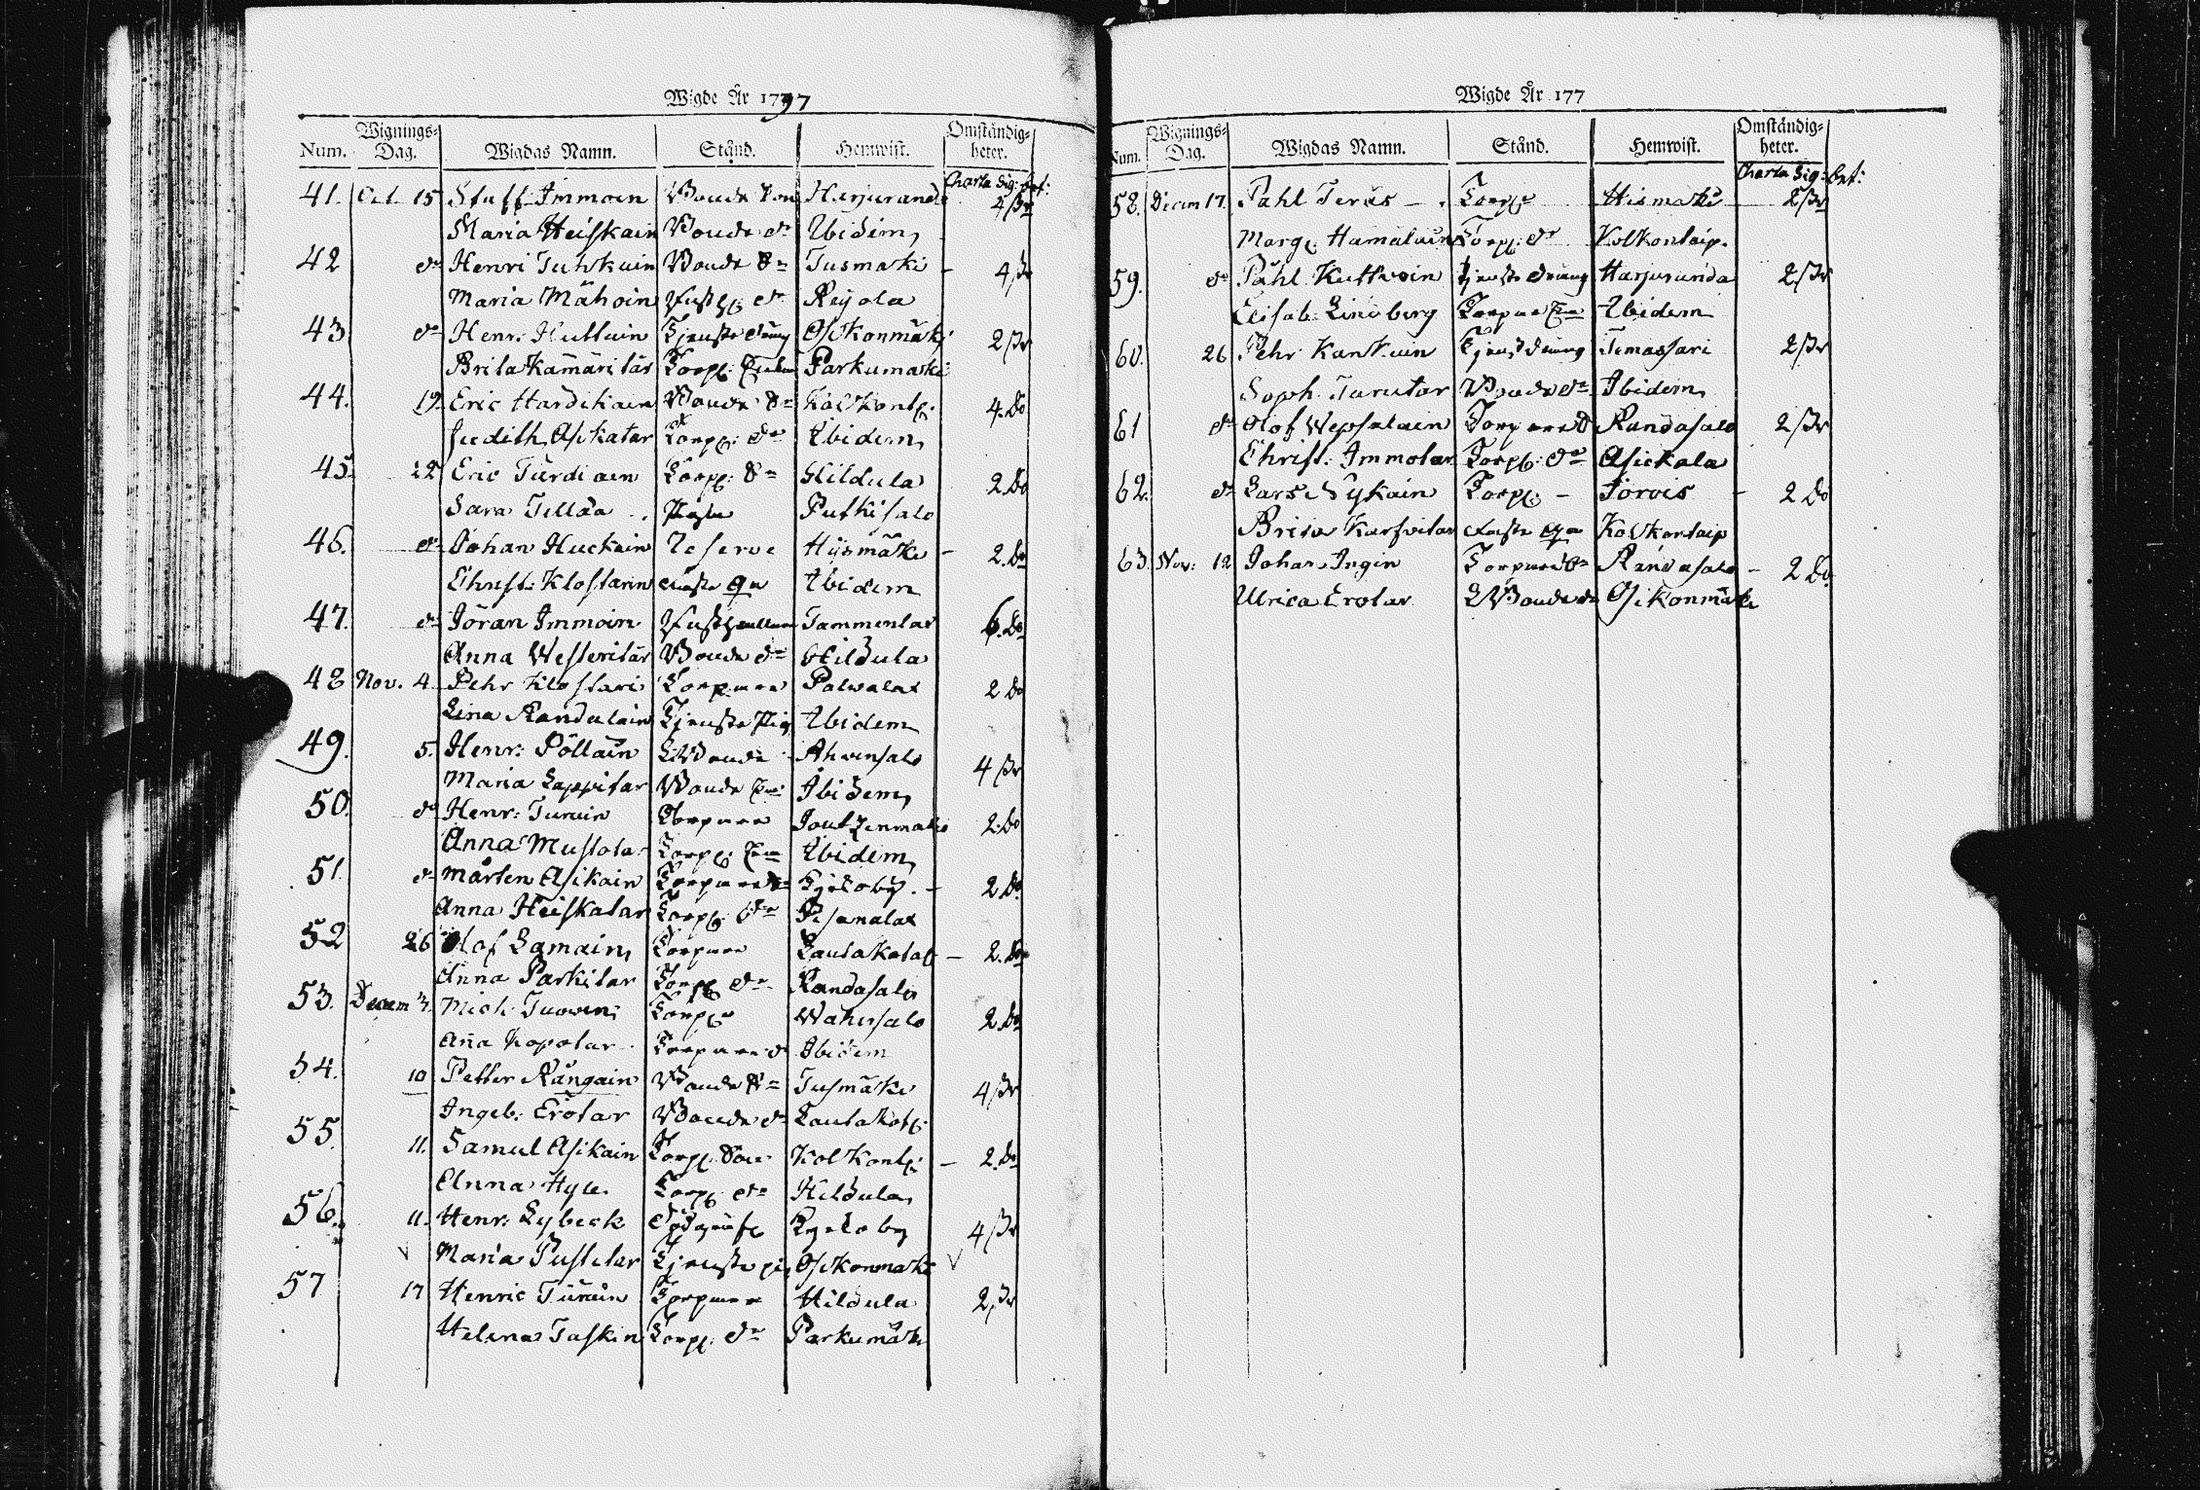 Wigde År 1797
Num. Wignings-Dag. Wigdas Namn. Stånd. Hemwist. Omständigheter.
Charta Sig: bet:
41. Oct. 15 Staff. Immoin Bonde Son Harjurand
Maria Heiskain Bonde dr Ibidem
42 do Henri Tuhkain Bonde Sn Tusmäki 4 ßr
Maria Mähoin dr Reijola
43 do Henr: Huttuin Tjenste dräng Osikonmäki 2 ßr
Brita Kämäritär Torp: Enkan Parkumäki
44. 19. Eric Hardikain Bonde Sn Kolkontp: 4. Do
Judith Asikatar Torp: dr Ibidem
45. 22 Eric Turdiain Torp: Sn Hildula 2. Do
Sara Tillåa Piga Putkisalo
46. do Johan Huckain Reserve Hijsmäki 2. Do
Christ: Klostarin Ibidem
47. do Jöran Immoin Tammenlax 6. Do
Anna Westeritär Bonde dr Hildula
48 Nov. 4 Pehr Klostari Torpare Palvalax 2 Do
Lina Randalain Tjenste Pig Ibidem
49. 5. Henr: Pöllain Bonde Ahvensalo 4 ßr
Maria Lappitar Bonde Ibidem
50. do Henr: Turuin Torpare Joutzenmäki 2. Do
Anna Mustotar Torp: Ibidem
51. do Mårten Asikain Torpare Kyrkoby. 2. Do
Anna Heiskatar Torp: dr Pisamalax
52 26 Olof Lamain Torpare Lautakotal 2. Do
Anna Parkitar Torp: dr Randasalo
53. Decem 3. Mich: Tuovin Torp: Watusalo 2. Do
Aña Kopotar Torpare d Ibidem
54. 10 Petter Rångain Bonde Sn Tusmäki 4 ßr
Ingeb: Erotar Bonde dr Lautakotp:
55. 11. Samul Asikain Torp: Son Kolkontp: 2. Do
Anna Hyle Torp: dr Hildula
56. 11. Henr: Lybeck Kyrkoby 4 ßr
Maria Pustitar Tjenste pig Osikonmäki
57 17 Henric Turuin Torpare Hildula 2 ßr
Helena Taskin Torp: dr Parkumäki
Wigde År 177
Num. Wignings-Dag. Wigdas Namn. Stånd. Hemwist. Omständigheter.
Charta Sig: bet:
58. Decem 17. Påhl Teräs Torp Hismäki 2 ßr
Marg: Hämäläin Torp: dr Kolkontaip.
59. do Påhl Kuttvoin tjenste dräng Harjuranda 2 ßr
Elisab: Lindberg Ibidem
60. 26 Pehr Kankuin Tjenst dräng Timassari 2 ßr
Soph. Turutar Bonde dr Ibidem
61 do Olof Wepsäläin Torpare S Randasalo 2 ßr
Christ: Immotar Torp: dr Asickala
62. do Lars Nykäin Torp: Jorois 2 Do
Brita Karfvitar Kolkontaip
63. Nov: 12 Johan Ingin Torpare Sn Randasalo 2 Do
Ulrica Erotar Bonde dr Osikonmäki